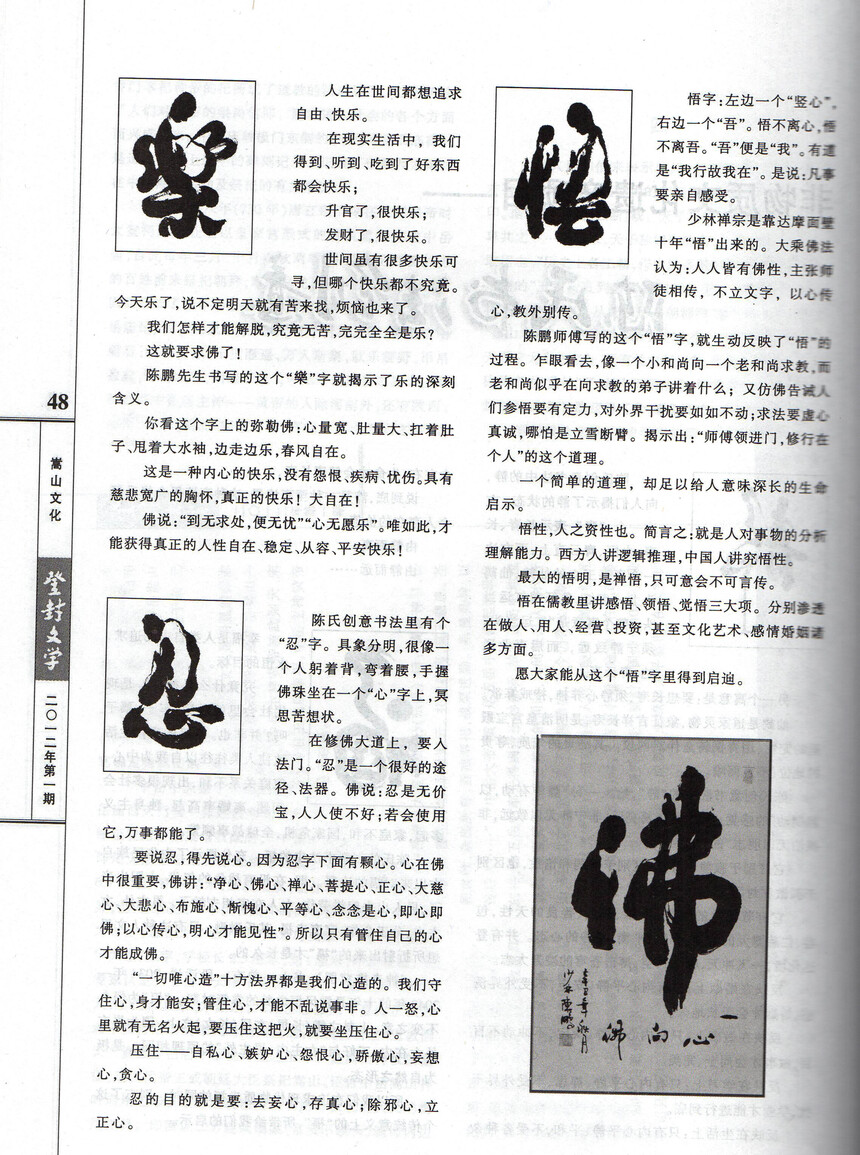 樂
人生在世间都想追求
自由、快乐。
在现实生活中，我们
得到、听到、吃到了好东西
都会快乐；
升官了，很快乐；
发财了，很快乐。
世间虽有很多快乐可
寻，但哪个快乐都不究竟。
今天乐了，说不定明天就有苦来找，烦恼也来了。
我们怎样才能解脱，究竟无苦，完完全全是乐？
这就要求佛了！
陈鹏先生书写的这个“樂”字就揭示了乐的深刻
含义。
你看这个字上的弥勒佛：心量宽、肚量大、扛着肚
子、甩着大水袖，边走边乐，春风自在。
这是一种内心的快乐，没有怨恨、疾病、忧伤。具有
慈悲宽广的胸怀，真正的快乐！大自在！
佛说：“到无求处，便无忧”“心无愿乐”。唯如此，才
能获得真正的人性自在、稳定、从容、平安快乐！
忍
陈氏创意书法里有个
“忍”字。具象分明，很像一
个人躬着背，弯着腰，手握
佛珠坐在一个“心”字上，冥
思苦想状。
在修佛大道上，要人
法门。“忍”是一个很好的途
径、法器。佛说：忍是无价
宝，人人使不好；若会使用
它，万事都能了。
要说忍，得先说心。因为忍字下面有颗心。心在佛
中很重要，佛讲：“净心、佛心、禅心、菩提心、正心、大慈
心、大悲心、布施心、惭愧心、平等心、念念是心，即心即
佛；以心传心，明心才能见性”。所以只有管住自己的心
才能成佛。
“一切唯心造”十方法界都是我们心造的。我们守
住心，身才能安；管住心，才能不乱说事非。人一怒，心
里就有无名火起，要压住这把火，就要坐压住心。
压住——自私心、嫉妒心、怨恨心，骄傲心，妄想
心，贪心。
忍的目的就是要：去妄心，存真心；除邪心，立
正心。
悟
悟字：左边一个“竖心”，
右边一个“吾”。悟不离心，悟
不离吾。“吾”便是“我”。有道
是“我行故我在”。是说：凡事
要亲自感受。
少林禅宗是靠达摩面壁
十年“悟”出来的。大乘佛法
认为：人人皆有佛性，主张师
徒相传，不立文字，以心传
心，教外别传。
陈鹏师傅写的这个“悟”字，就生动反映了“悟”的
过程。乍眼看去，像一个小和尚向一个老和尚求教，而
老和尚似乎在向求教的弟子讲着什么；又仿佛告诫人
们参悟要有定力，对外界干扰要如如不动；求法要虚心
真诚，哪怕是立雪断臂。揭示出：“师傅领进门，修行在
个人”的这个道理。
一个简单的道理，却足以给人意味深长的生命
启示。
悟性，人之资性也。简言之：就是人对事物的分析
理解能力。西方人讲逻辑推理，中国人讲究悟性。
最大的悟明，是禅悟，只可意会不可言传。
悟在儒教里讲感悟、领悟、觉悟三大项。分别渗透
在做人、用人、经营、投资，甚至文化艺术、感情婚姻诸
多方面。
愿大家能从这个“悟”字里得到启迪。
佛
一心向佛
48
嵩山文化
登封文学
二〇一二年第一期